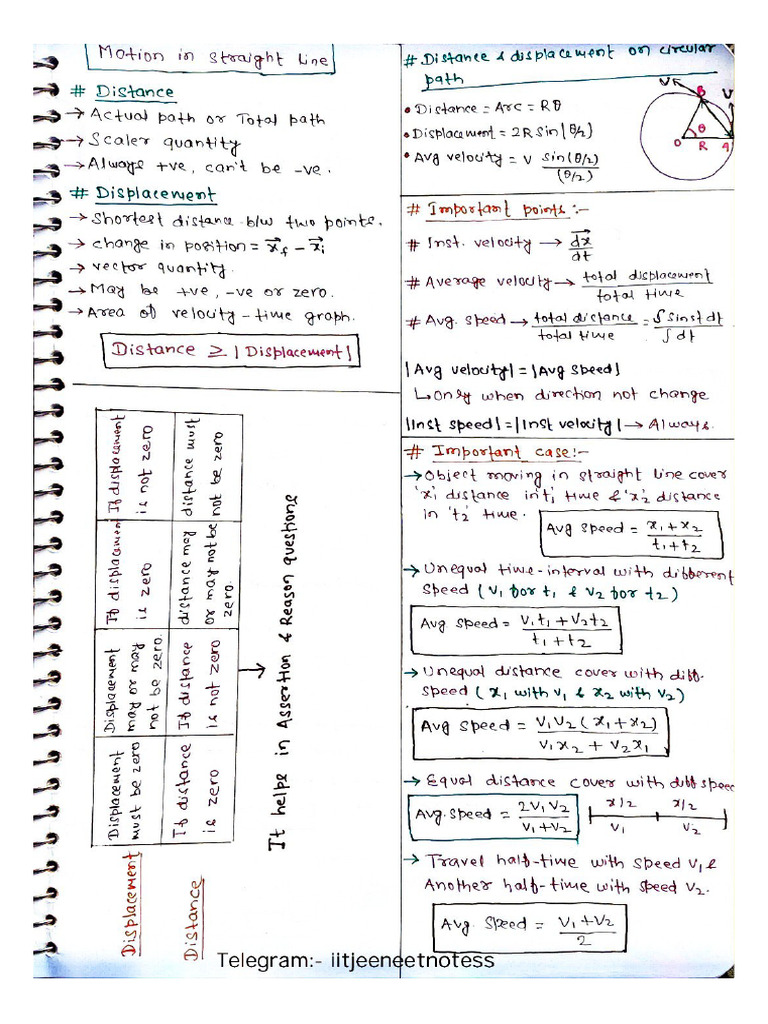 Motion in straight line
# Distance
→ Actual path or Total path
→ Scaler quantity
→ Always +ve, can't be -ve.
# Displacement
→ Shortest distance b/w two points.
→ change in position = x⃗f - x⃗i
→ vector quantity.
→ May be +ve, -ve or zero.
→ Area of velocity-time graph.
Distance ≥ |Displacement|
Displacement
Displacement must be zero
Displacement may or may not be zero.
If displacement is zero
If displacement is not zero
Distance
If distance is zero
If distance is not zero
distance may or may not be zero.
distance must not be zero
→ It helps in Assertion & Reason questions
# Distance & displacement on circular
path
• Distance = Arc = Rθ
• Displacement = 2R sin(θ/2)
• Avg velocity = v sin(θ/2)/(θ/2)
V
B
V
θ
O R A
# Important points:-
# Inst. velocity → dx⃗/dt
# Average velocity → total displacement/total time
# Avg. speed → total distance/total time = ∫sinst dt/∫dt
|Avg velocity| = |Avg speed|
↳ Only when direction not change
|Inst speed| = |Inst velocity| → Always.
# Important case:-
→ Object moving in straight line cover
'x₁' distance in 't₁' time & 'x₂' distance
in 't₂' time.
Avg speed = x₁+x₂/t₁+t₂
→ Unequal time-interval with different
speed (v₁ for t₁ & v₂ for t₂)
Avg speed = v₁t₁+v₂t₂/t₁+t₂
→ Unequal distance cover with diff.
speed (x₁ with v₁ & x₂ with v₂)
Avg speed = v₁v₂(x₁+x₂)/v₁x₂+v₂x₁
→ Equal distance cover with diff speed
Avg. speed = 2v₁v₂/v₁+v₂
x/2 x/2
v₁ v₂
→ Travel half-time with speed v₁ &
Another half-time with speed v₂.
Avg. speed = v₁+v₂/2
Telegram:- iitjeeneetnotess